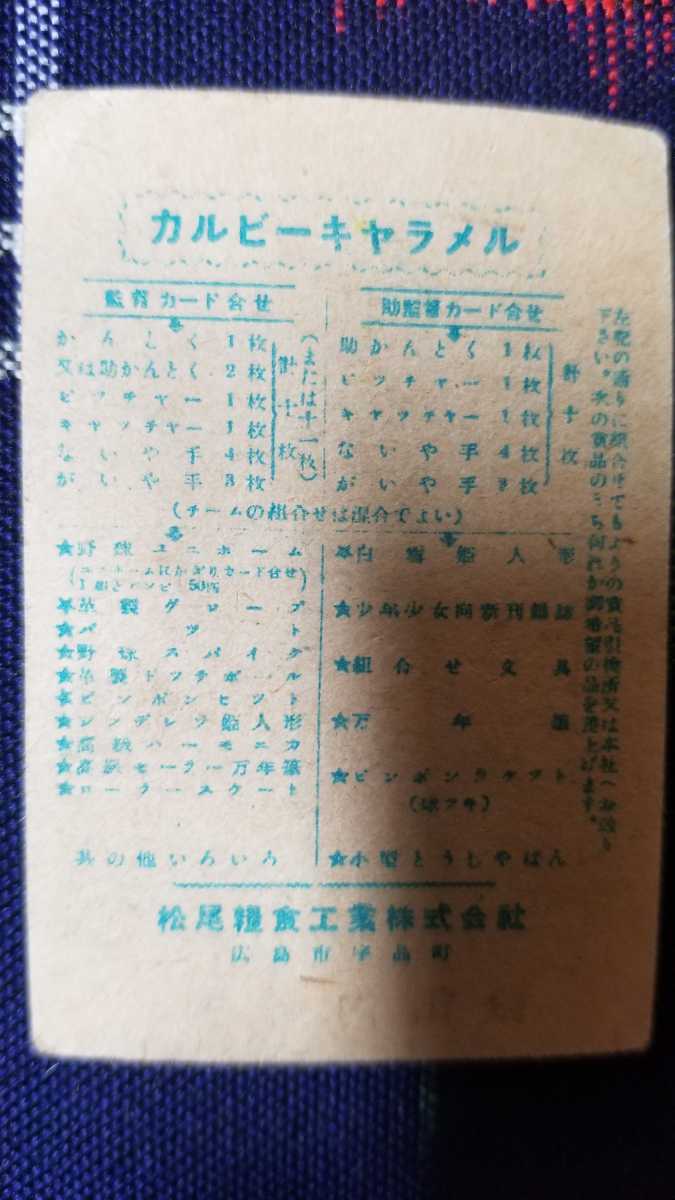 カルビーキャラメル
監督カード合せ
かんとく 1枚
又は助かんとく 2枚
ピッチャー 1枚
キャッチャー 1枚
ないや手 4枚
がいや手 3枚
計十枚
(または十一枚)
助監督カード合せ
助かんとく 1枚
ピッチャー 1枚
キャッチャー 1枚
ないや手 4枚
がいや手 3枚
計十枚
(チームの組合せは混合でよい)
★野球ユニホーム
(ユニホームにかぎりカード合せ
1組とバンビ 50円)
★革製グローブ
★バット
★野球スパイク
★革製ドッチボール
★ピンポンセット
★シンデレラ姫人形
★高級ハーモニカ
★高級セーラー万年筆
★ローラースケート
其の他いろいろ
★白雪姫人形
★少年少女向新刊雑誌
★組合せ文具
★万年筆
★ピンポンラケット
(球ツキ)
★小型とうしやばん
左記の通りに組合せてもよりの賣元引換所又は本社へお送り
下さい。次の賞品のうち何れか御希望の品を差上げます。
松尾糧食工業株式会社
広島市宇品町